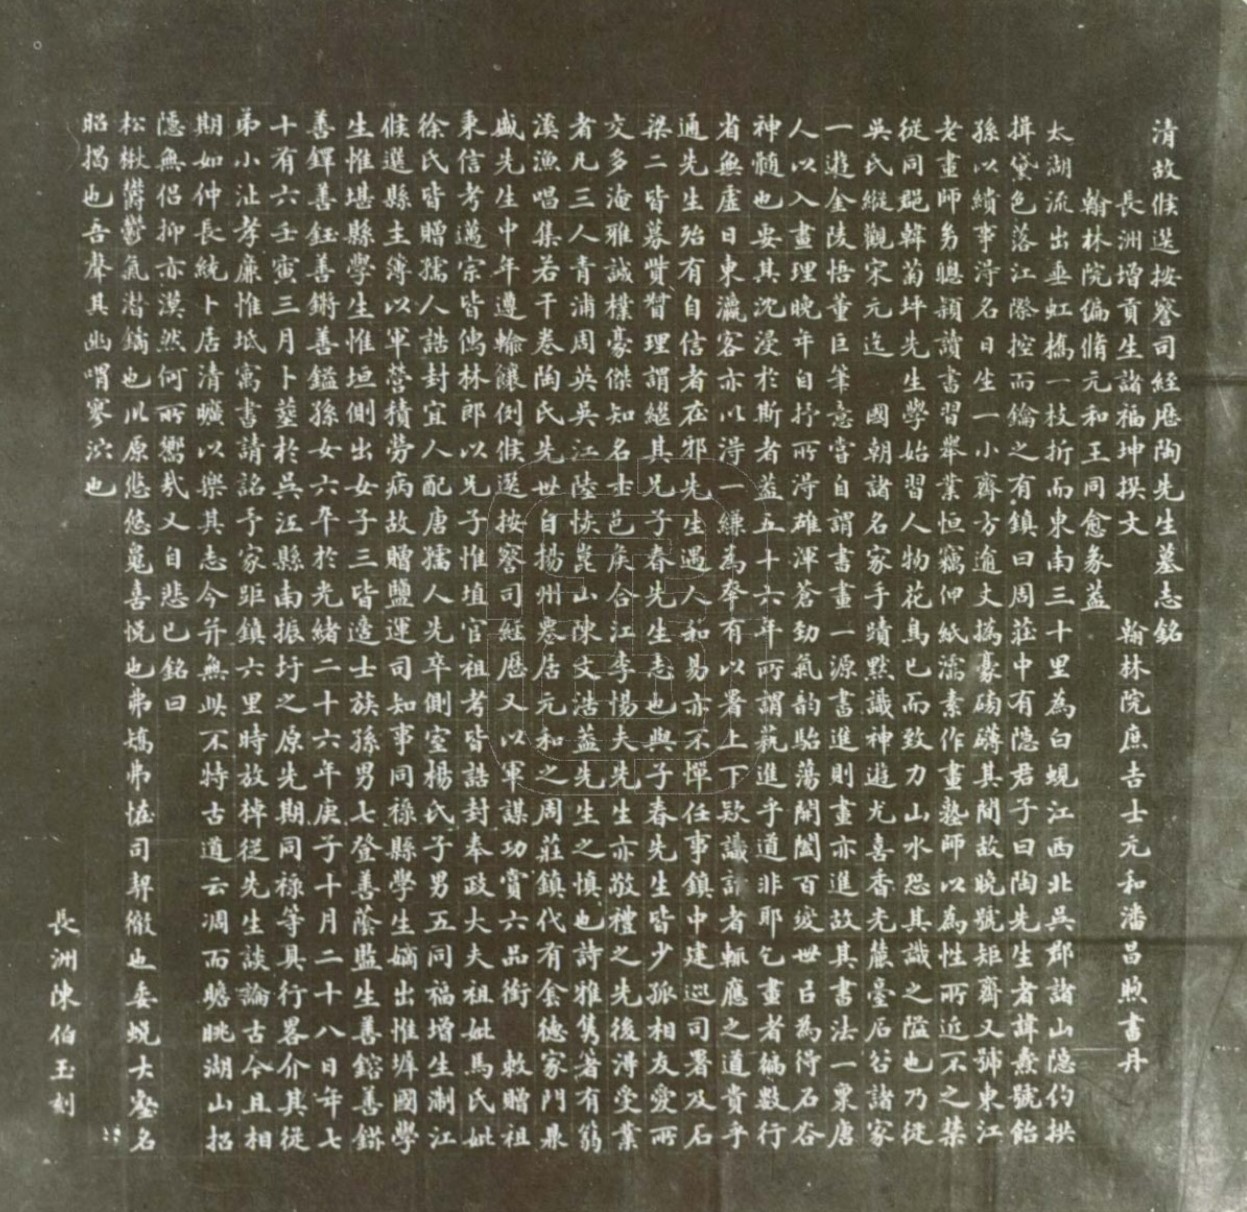 清故候選按察司經歷陶先生墓志銘
長洲增貢生諸福坤撰文　翰林院庶吉士元和潘昌煦書丹
翰林院編脩元和王同愈篆蓋
太湖流出垂虹橋一枝折而東南三十里為白蜆江西北吳郡諸山隱約拱
揖黛色落江際控而鑰之有鎮曰周莊中有隱君子曰陶先生者諱燾號飴
孫以績事淂名日生一小齋方逾丈撝豪磅礴其間故晚號矩齋又號東江
老畫師多聰穎讀書習舉業恒竊伸紙濡素作畫塾師以為性所近不之禁
從同邑韓菊坪先生學始習人物花鳥已而致力山水恐其識之隘也乃從
吳氏縱觀宋元迄　國朝諸名家手蹟默識神遊尤喜香光麓臺石谷諸家
一遊金陵悟董巨筆意嘗自謂書畫一源書進則畫亦進故其書法一稟唐
人以入畫理晚年自抒所淂雄渾蒼勁氣韵駘蕩開闔百變世目為得石谷
神髓也要其沈浸於斯者蓋五十六年所謂藝進乎道非耶乞畫者編數行
省無虛日東瀛客亦以淂一縑為奉有以署上下款議訾者輒應之道貴乎
通先生殆有自信者在邪先生遇人和易亦不憚任事鎮中建巡司署及石
梁二皆募貲督理謂繼其兄子春先生志也與子春先生皆少孤相友愛所
交多淹雅誠樸豪傑知名士邑矦合江李惕夫先生亦敬禮之先後淂受業
者凡三人青浦周英吳江陸恢崑山陳文浩蓋先生之慎也詩雅雋著有翦
溪漁唱集若干卷陶氏先世自揚州遷居元和之周莊鎮代有食德家門鼎
盛先生中年遵輸饟例候選按察司經歷又以軍謀功賞六品銜　敕贈祖
秉信考邁宗皆儁林郎以兄子惟埴官祖考皆誥封奉政大夫祖妣馬氏妣
徐氏皆贈孺人誥封宜人配唐孺人先卒側室楊氏子男五同福增生淛江
候選縣主簿以軍營積勞病故贈鹽運司知事同祿縣學生嫡出惟墀國學
生惟堪縣學生惟垣側出女子三皆適士族孫男七登善蔭監生善鎔善鍇
善鐸善鈺善鏘善鎰孫女六卒於光緒二十六年庚子十月二十八日年七
十有六壬寅三月卜葬於吳江縣南振圩之原先期同祿等具行畧介其從
弟小沚孝廉惟坻寓書請詺予家距鎮六里時放棹從先生談論古今且相
期如仲長統卜居清曠以樂其志今并無此不特古道云凋而瞻眺湖山招
隱無侶抑亦漠然何所嚮哉又自悲已銘曰
松楸欝鬱氣潛鏑也川原悠悠䰟喜悅也弗墧弗恠司契徹也委蛻大壑名
昭揭也吾聲其幽喟寥泬也
長洲陳伯玉刻